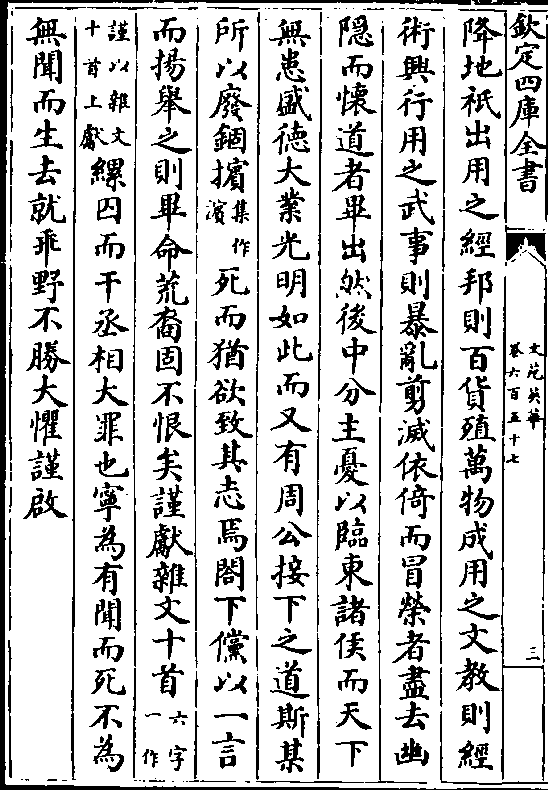 欽定四庫全書
文苑英華
卷六百五十七
三
降地祇出用之經邦則百貨殖萬物成用之文教則經
術興行用之武事則暴亂剪滅依倚而冒榮者盡去幽
隱而懷道者畢出然後中分主憂以臨東諸侯而天下
無患盛德大業光明如此而又有周公接下之道斯某
所以廢錮擯集作濱死而猶欲致其志焉閤下儻以一言
而揚舉之則畢命荒裔固不恨矣謹獻雜文十首六字一作
謹以雜文十首上獻縲囚而干丞相大罪也寧為有聞而死不為
無聞而生去就乖野不勝大懼謹啟